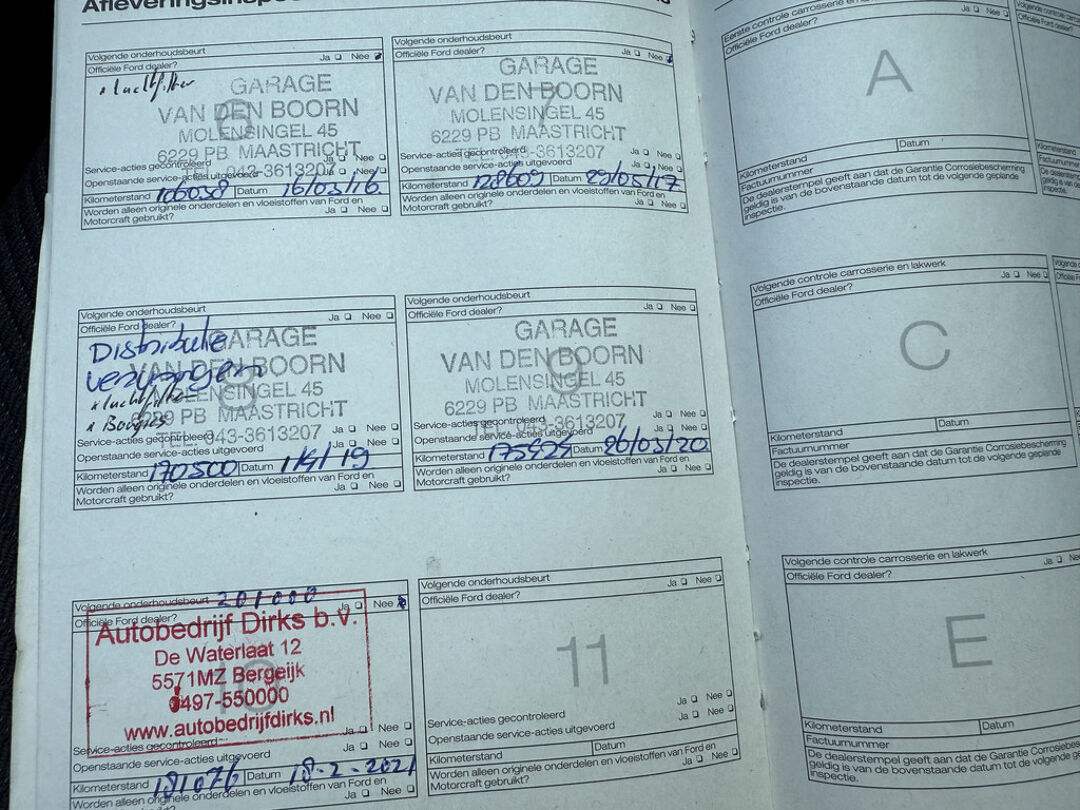 Volgende onderhoudsbeurt
Officiële Ford dealer? Ja Nee
luchtfilter
6
GARAGE
VAN DEN BOORN
MOLENSINGEL 45
6229 PB MAASTRICHT
TEL. 043-3613207
Service-acties gecontroleerd Ja Nee
Openstaande service-acties uitgevoerd Ja Nee
Kilometerstand 106038 Datum 16/03/16
Worden alleen originele onderdelen en vloeistoffen van Ford en
Motorcraft gebruikt? Ja Nee
Volgende onderhoudsbeurt
Officiële Ford dealer? Ja Nee
7
GARAGE
VAN DEN BOORN
MOLENSINGEL 45
6229 PB MAASTRICHT
TEL. 043-3613207
Service-acties gecontroleerd Ja Nee
Openstaande service-acties uitgevoerd Ja Nee
Kilometerstand 128609 Datum
Worden alleen originele onderdelen en vloeistoffen van Ford en
Motorcraft gebruikt? Ja Nee
Volgende onderhoudsbeurt
Officiële Ford dealer? Ja Nee
Distributie
vervangen
luchtfilter
Bougies
8
GARAGE
VAN DEN BOORN
MOLENSINGEL 45
6229 PB MAASTRICHT
TEL. 043-3613207
Service-acties gecontroleerd Ja Nee
Openstaande service-acties uitgevoerd Ja Nee
Kilometerstand 170500 Datum 1/4/19
Worden alleen originele onderdelen en vloeistoffen van Ford en
Motorcraft gebruikt? Ja Nee
Volgende onderhoudsbeurt
Officiële Ford dealer? Ja Nee
9
GARAGE
VAN DEN BOORN
MOLENSINGEL 45
6229 PB MAASTRICHT
TEL. 043-3613207
Service-acties gecontroleerd Ja Nee
Openstaande service-acties uitgevoerd Ja Nee
Kilometerstand Datum 26/03/20
Worden alleen originele onderdelen en vloeistoffen van Ford en
Motorcraft gebruikt? Ja Nee
Volgende onderhoudsbeurt 201000
Officiële Ford dealer? Ja Nee
10
Autobedrijf Dirks b.v.
De Waterlaat 12
5571MZ Bergeijk
0497-550000
www.autobedrijfdirks.nl
Service-acties gecontroleerd Ja Nee
Openstaande service-acties uitgevoerd Ja Nee
Kilometerstand 181076 Datum 18-2-2021
Worden alleen originele onderdelen en vloeistoffen van Ford en
Ja Nee
Volgende onderhoudsbeurt
Officiële Ford dealer? Ja Nee
11
Service-acties gecontroleerd Ja Nee
Openstaande service-acties uitgevoerd Ja Nee
Kilometerstand Datum
Worden alleen originele onderdelen en vloeistoffen van Ford en
Motorcraft gebruikt? Ja Nee
Eerste controle carrosserie en
Officiële Ford dealer? Ja Nee
A
Kilometerstand Datum
Factuurnummer
De dealerstempel geeft aan dat de Garantie Corrosiebescherming
geldig is van de bovenstaande datum tot de volgende geplande
inspectie.
Volgende controle carrosserie en lakwerk
Officiële Ford dealer? Ja Nee
C
Kilometerstand Datum
Factuurnummer
De dealerstempel geeft aan dat de Garantie Corrosiebescherming
geldig is van de bovenstaande datum tot de volgende geplande
inspectie.
Volgende controle carrosserie en lakwerk
Officiële Ford dealer? Ja Nee
E
Kilometerstand Datum
Factuurnummer
De dealerstempel geeft aan dat de Garantie
geldig is van de bovenstaande datum tot de volgende geplande
inspectie.